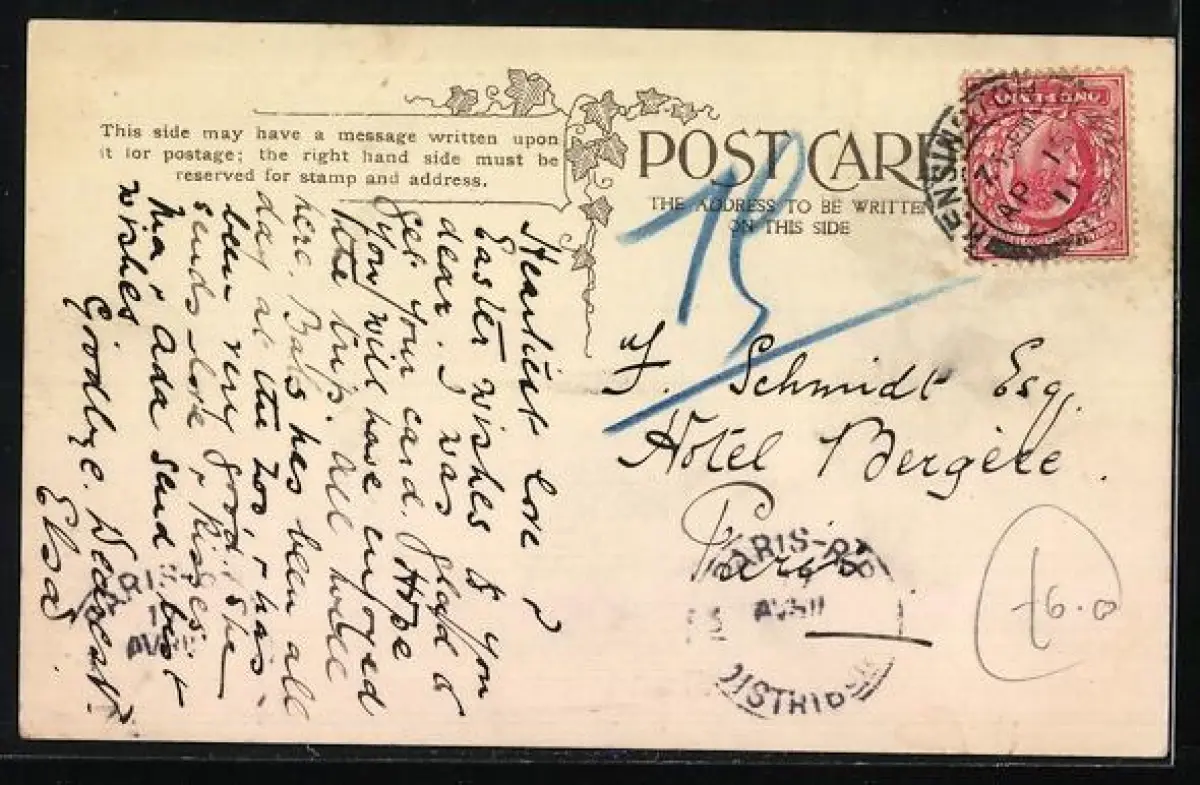 This side may have a message written upon
it for postage; the right hand side must be
reserved for stamp and address.
POST CARD
THE ADDRESS TO BE WRITTEN
ON THIS SIDE
ONE PENNY
KENSINGTON
AP 15
11
Heartiest love &
Easter wishes to you
dear. I was glad to
get your card. Hope
you will have enjoyed
the trip. All well
here. Babs has been all
day at the Zoo, & has
been very good. She
sends love & kisses.
Ma, & Ada send best
wishes
Goodbye. Dearest.
Elsa.
F. Schmidt Esq.
Hotel Bergère.
Paris
PARIS
AVRIL
DISTRIBUTION
PARIS
AVRIL